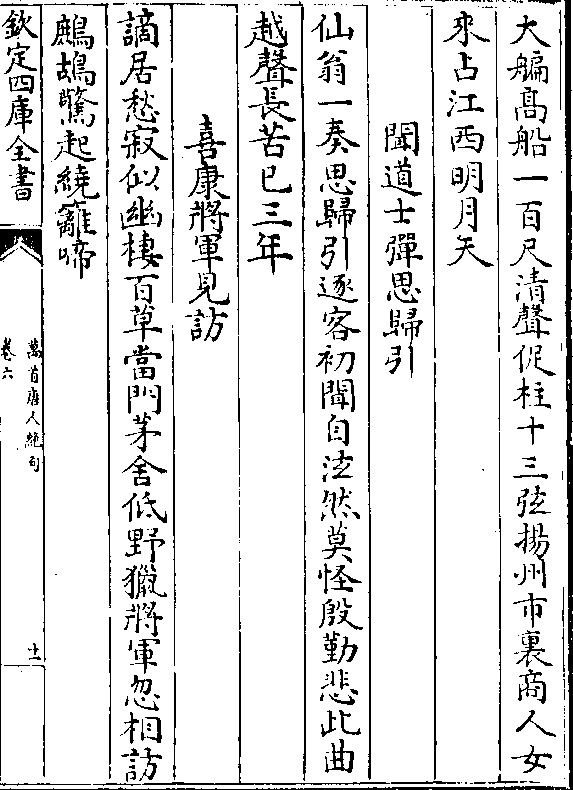 大艑髙船一百尺清聲促柱十三弦揚州市裏商人女
來占江西明月天
聞道士彈思歸引
仙翁一奏思歸引逐客初聞自泫然莫怪殷勤悲此曲
越聲長苦已三年
喜康將軍見訪
謫居愁寂似幽棲百草當門茅舍低野獵將軍忽相訪
鷓鴣驚起繞籬啼
欽定四庫全書
萬首唐人絶句
卷六
十一